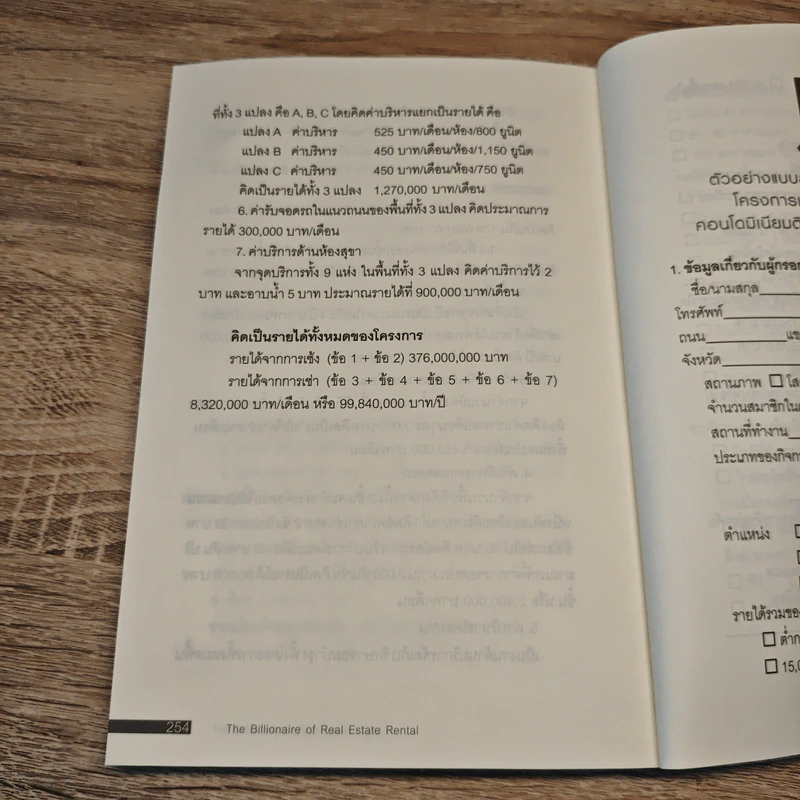 ที่ทั้ง 3 แปลง คือ A, B, C โดยคิดค่าบริหารแยกเป็นรายได้ คือ
แปลง A ค่าบริหาร 525 บาท/เดือน/ห้อง/800 ยูนิต
แปลง B ค่าบริหาร 450 บาท/เดือน/ห้อง/1,150 ยูนิต
แปลง C ค่าบริหาร 450 บาท/เดือน/ห้อง/750 ยูนิต
คิดเป็นรายได้ทั้ง 3 แปลง 1,270,000 บาท/เดือน
6. ค่ารับจอดรถในแนวถนนของพื้นที่ทั้ง 3 แปลง คิดประมาณการ
รายได้ 300,000 บาท/เดือน
7. ค่าบริการด้านห้องสุขา
จากจุดบริการทั้ง 9 แห่ง ในพื้นที่ทั้ง 3 แปลง คิดค่าบริการไว้ 2
บาท และอาบน้ำ 5 บาท ประมาณรายได้ที่ 900,000 บาท/เดือน
คิดเป็นรายได้ทั้งหมดของโครงการ
รายได้จากการเซ้ง (ข้อ 1 + ข้อ 2) 376,000,000 บาท
รายได้จากการเช่า (ข้อ 3 + ข้อ 4 + ข้อ 5 + ข้อ 6 + ข้อ 7)
8,320,000 บาท/เดือน หรือ 99,840,000 บาท/ปี
254 The Billionaire of Real Estate Rental
ตัวอย่างแบบ
โครงการ
คอนโดมิเนียม
1. ข้อมูลเกี่ยวกับผู้กรอก
ชื่อ/นามสกุล
โทรศัพท์
ถนน
จังหวัด
สถานภาพ
จำนวนสมาชิกใน
สถานที่ทำงาน
ประเภทของกิจการ
ตำแหน่ง
รายได้รวมของ